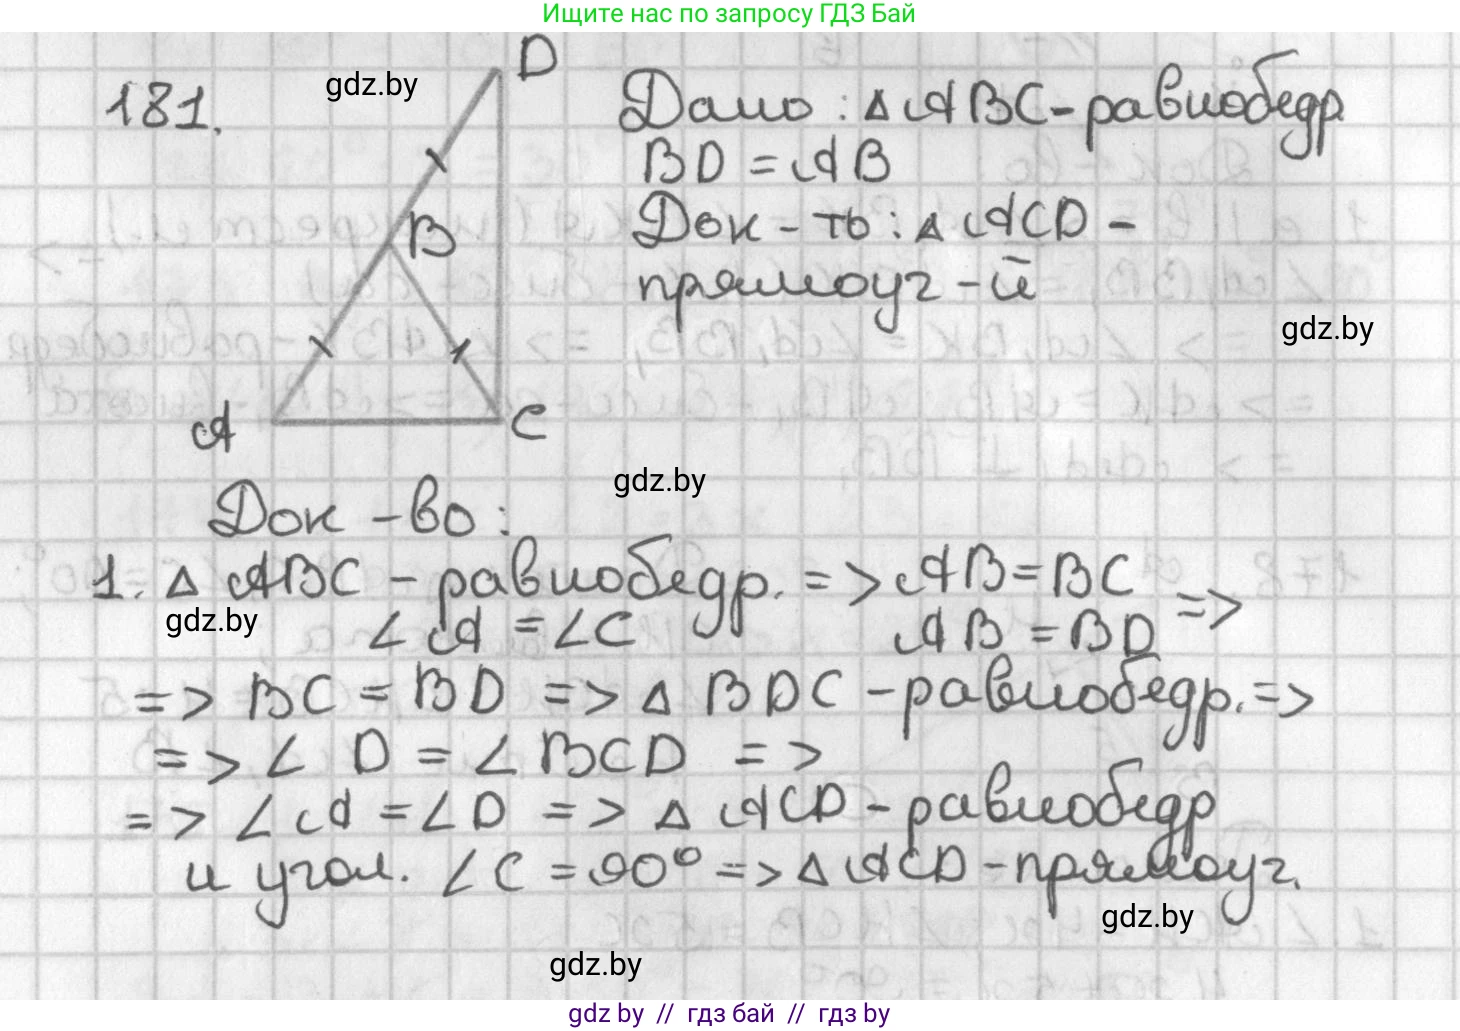 Ищите нас по запросу ГДЗ Бай
181.
gdz.by
D
B
A
C
Дано: △ABC-равнобедр.
BD = AB
Док-ть: △ACD -
прямоуг-й
gdz.by
gdz.by
Док-во:
1. △ABC - равнобедр. => AB=BC
gdz.by
∠A = ∠C AB = BD =>
=> BC = BD => △BDC - равнобедр. =>
=> ∠D = ∠BCD =>
=> ∠A = ∠D => △ACD - равнобедр
и угол. ∠C = 90° => △ACD - прямоуг.
gdz.by
gdz.by
gdz by // гдз бай // гдз by